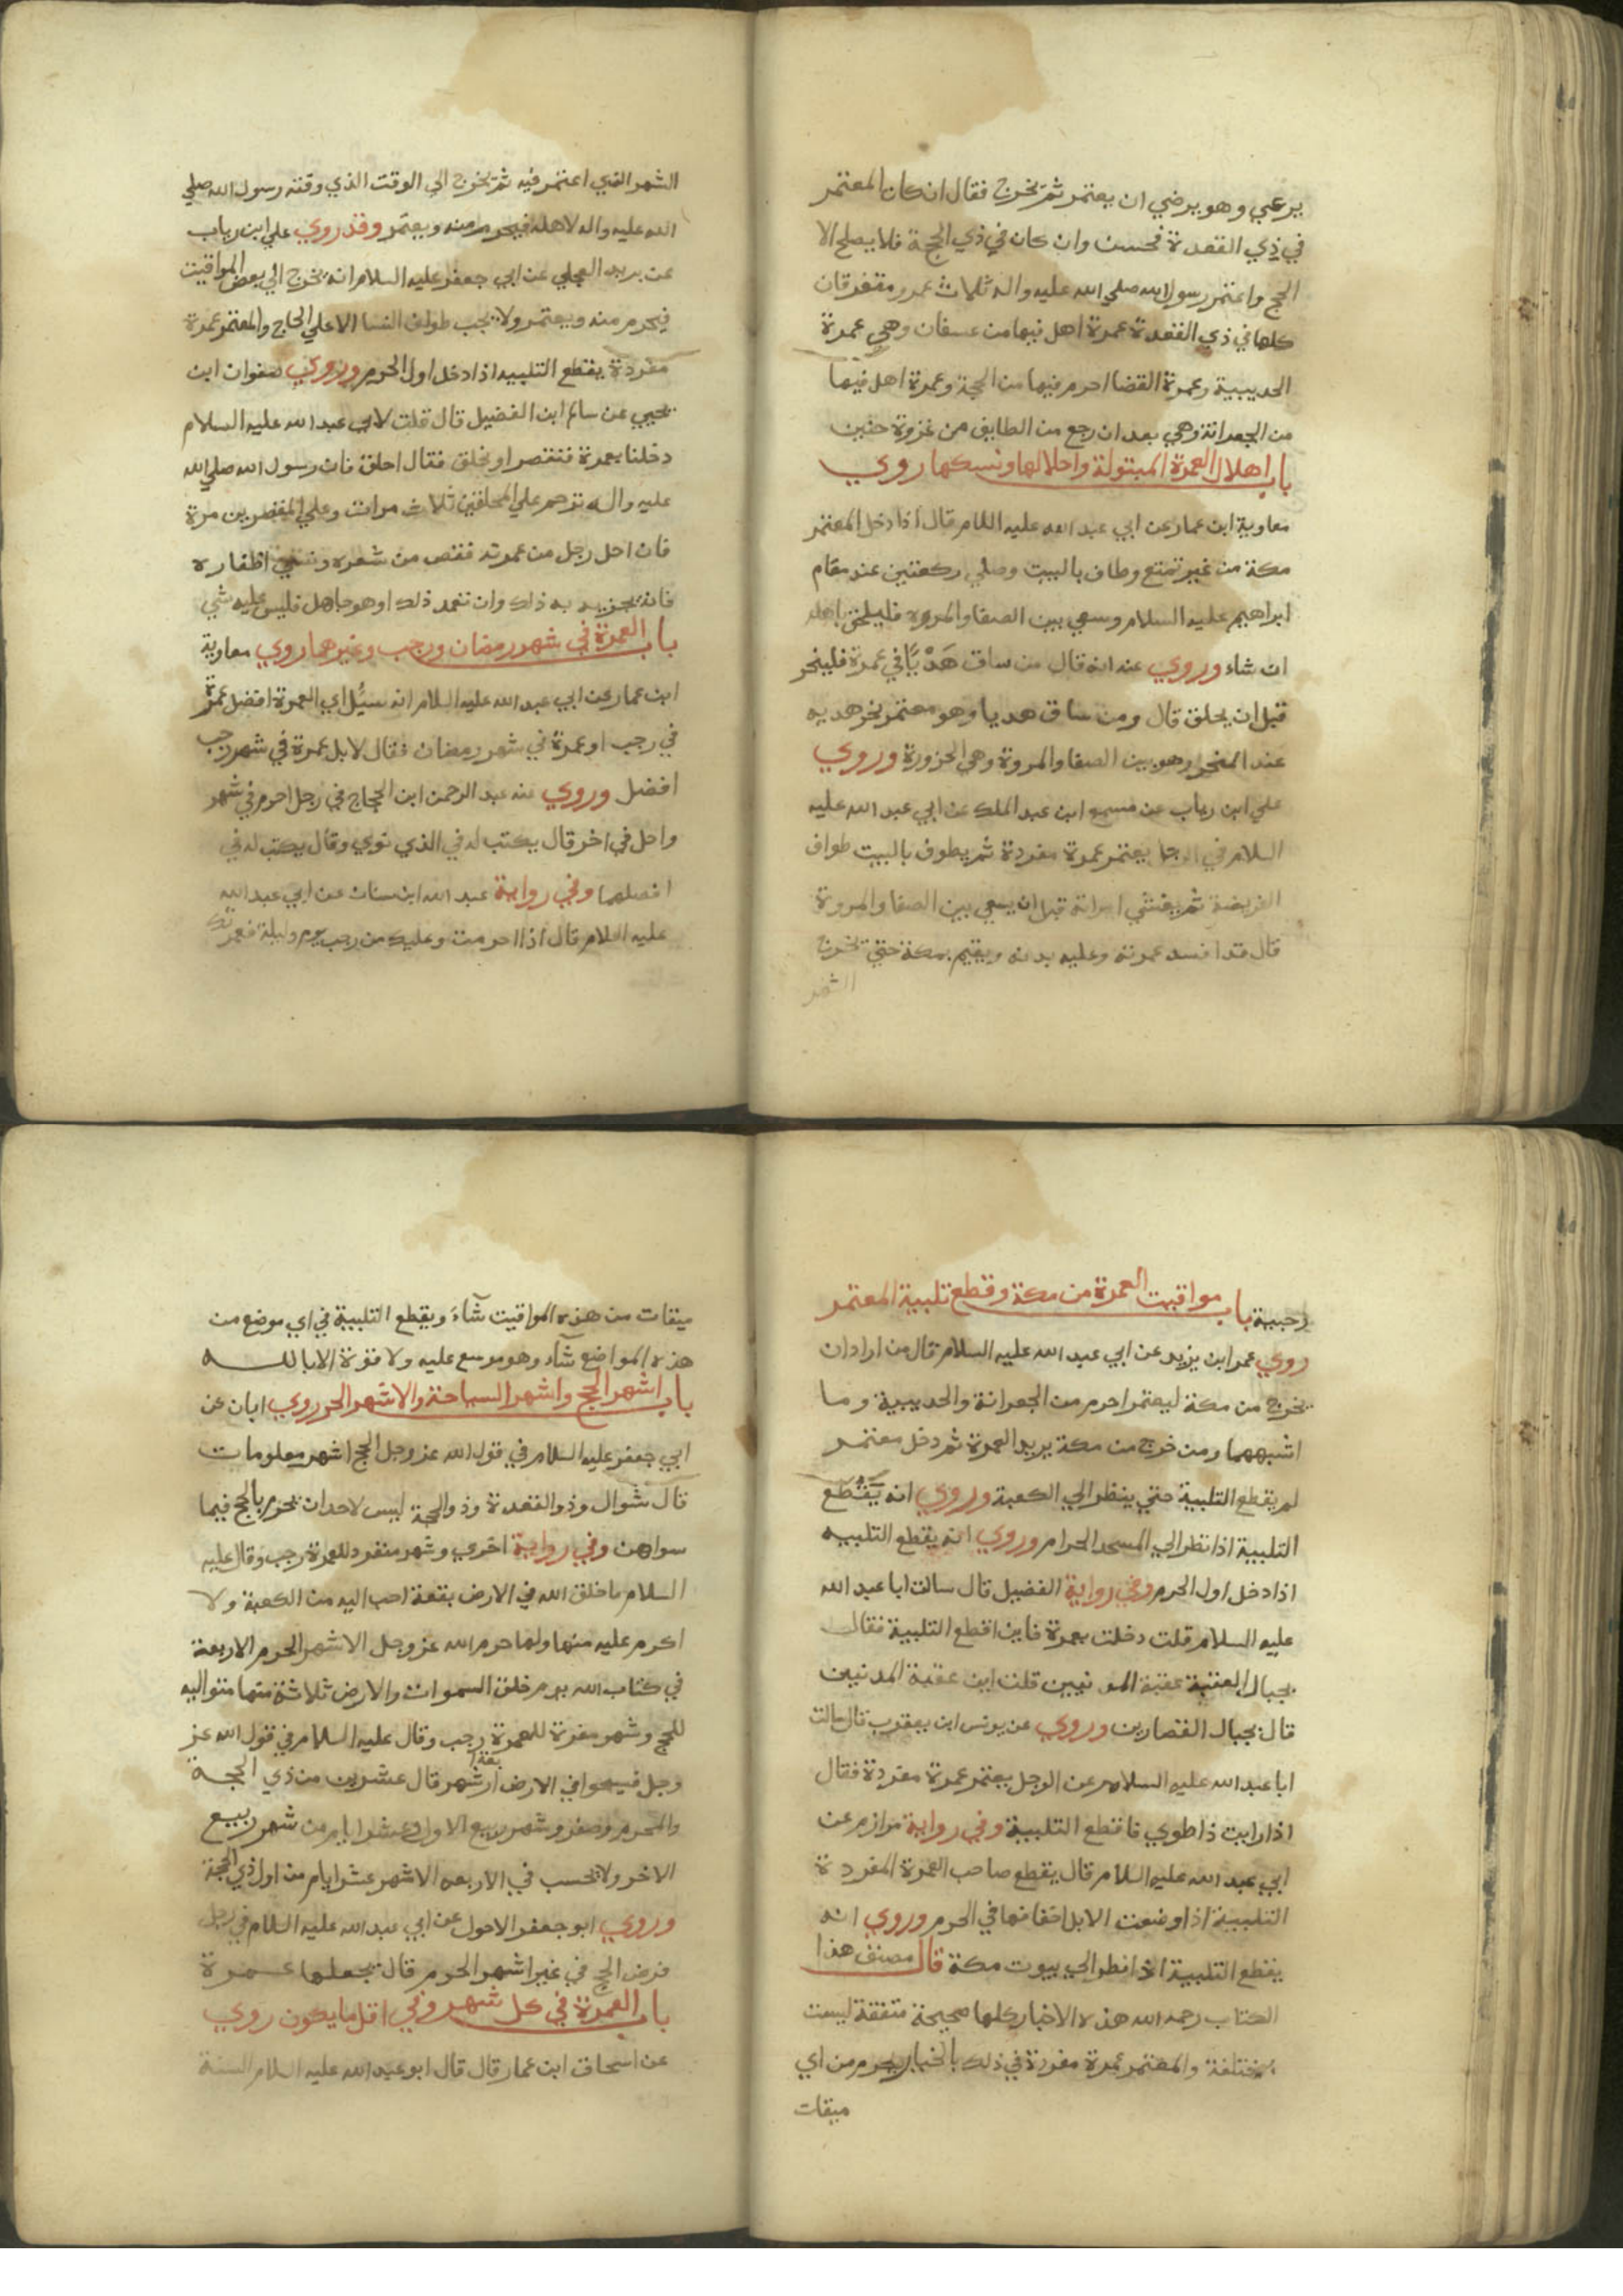 يرعي وهو يرضي ان يعتمر ثم يخرج فقال ان كان المعتمر
في ذي القعدة فحسن وان كان في ذي الحجة فلا يصلح الا
الحج واعتمر رسول الله صلي الله عليه واله ثلاث عمر متفرقات
كلها في ذي القعدة عمرة اهل فيها من عسفان وهي عمرة
الحديبية وعمرة القضا احرم فيها من الجحفة وعمرة اهل فيها
من الجعرانة وهي بعد ان رجع من الطايف من غزوة حنين
باب اهلال العمرة المبتولة واحلالها ونسكها روي
معاوية ابن عمار عن ابي عبد الله عليه السلام قال اذا دخل المعتمر
مكة من غير تمتع وطاف بالبيت وصلي ركعتين عند مقام
ابراهيم عليه السلام وسعي بين الصفا والمروه فليلحق باهله
ان شاء وروي عنه انه قال من ساق هَدْيًا في عمرة فلينحر
قبل ان يحلق قال ومن ساق هديا وهو معتمر نحر هديه
عند المنحر وهو بين الصفا والمروة وهي الحزورة وروي
علي ابن رياب عن مسمع ابن عبد الملك عن ابي عبد الله عليه
السلام في الرجل يعتمر عمرة مفردة ثم يطوف بالبيت طواف
الفريضة ثم يغشي امراته قبل ان يسعي بين الصفا والمروة
قال قد افسد عمرته وعليه بدنه ويقيم بمكة حتي يخرج
الشهر
الشهر الذي اعتمر فيه ثم يخرج الي الوقت الذي وقته رسول الله صلي
الله عليه واله لاهله فيحرم منه ويعتمر وقد روي علي ابن رياب
عن بريد العجلي عن ابي جعفر عليه السلام انه يخرج الي بعض المواقيت
فيحرم منه ويعتمر ولا يجب طواف النسا الا علي الحاج والمعتمر عمرة
مفردة يقطع التلبيه اذا دخل اول الحرم وروي صفوان ابن
يحيي عن سالم ابن الفضيل قال قلت لابي عبد الله عليه السلام
دخلنا بعمرة فنقصر او نحلق فقال احلق فان رسول الله صلي الله
عليه واله ترحم علي المحلقين ثلاث مرات وعلي المقصرين مرة
فان احل رجل من عمرته فقص من شعره ونسي اظفاره
فانه يجزيه به ذلك وان تعمد ذلك او هو جاهل فليس عليه شي
باب العمرة في شهر رمضان ورجب وغيرهما روي معاوية
ابن عمار عن ابي عبد الله عليه السلام انه سيُل اي العمرة افضل عمرة
في رجب او عمرة في شهر رمضان فقال لا بل عمرة في شهر رجب
افضل وروي عنه عبد الرحمن ابن الحجاج في رجل احرم في شهر
واحل في اخر قال يكتب له في الذي نوي وقال يكتب له في
افضلهما وفي رواية عبد الله ابن سنان عن ابي عبد الله
عليه السلام قال اذا احرمت وعليك من رجب يوم وليلة فعمرتك
رجبية باب مواقيت العمرة من مكة وقطع تلبية المعتمر
روي عمر ابن يزيد عن ابي عبد الله عليه السلام قال من اراد ان
يخرج من مكة ليعتمر احرم من الجعرانة والحديبية وما
اشبههما ومن خرج من مكة يريد العمرة ثم دخل معتمر
لم يقطع التلبية حتي ينظر الي الكعبة وروي انه يَقْطَع
التلبية اذا نظر الي المسجد الحرام وروي انه يقطع التلبيه
اذا دخل اول الحرم وفي رواية الفضيل قال سالت ابا عبد الله
عليه السلام قلت دخلت بعمرة فاين اقطع التلبية فقال
بحيال العقبة عقبة المدنيين قلت اين عقبة المدنيين
قال بحيال القصارين وروي عن يونس ابن يعقوب قال سالت
ابا عبد الله عليه السلام عن الرجل يعتمر عمرة مفردة فقال
اذا رايت ذا طوي فاقطع التلبية وفي رواية مرازم عن
ابي عبد الله عليه السلام قال يقطع صاحب العمرة المفردة
التلبية اذا وضعت الابل اخفافها في الحرم وروي انه
يقطع التلبية اذا نظر الي بيوت مكة قال مصنف هذا
الكتاب رحمه الله هذه الاخبار كلها صحيحة متفقة ليست
بمختلفة والمعتمر عمرة مفردة في ذلك بالخيار يحرم من اي
ميقات
ميقات من هذه المواقيت شآءَ ويقطع التلبية في اي موضع من
هذه المواضع شآء وهو موسع عليه ولا قوة الا بالله
باب اشهر الحج واشهر السياحة والاشهر الحرم روي ابان عن
ابي جعفر عليه السلام في قول الله عز وجل الحج اشهر معلومات
قال شوال وذو القعدة وذو الحجة ليس لاحد ان يحرم بالحج فيما
سواهن وفي رواية اخري وشهر منفرد للعمرة رجب وقال عليه
السلام ما خلق الله في الارض بقعة احب اليه من الكعبة ولا
اكرم عليه منها ولها حرم الله عز وجل الاشهر الحرم الاربعة
في كتاب الله يوم خلق السموات والارض ثلاثة منها متواليه
للحج وشهر مفرة للعمرة رجب وقال عليه السلام في قول الله عز
وجل فسيحوا في الارض اربعة اشهر قال عشرين من ذي الحجة
والمحرم وصفر وشهر ربيع الاول وعشر ايام من شهر ربيع
الاخر ولا يحسب في الاربعه الاشهر عشر ايام من اول ذي الحجة
وروي ابو جعفر الاحول عن ابي عبد الله عليه السلام في رجل
فرض الحج في غير اشهر الحرم قال يجعلها عمرة
باب العمرة في كل شهر وفي اقل ما يكون روي
عن اسحاق ابن عمار قال قال ابو عبد الله عليه السلام السنة